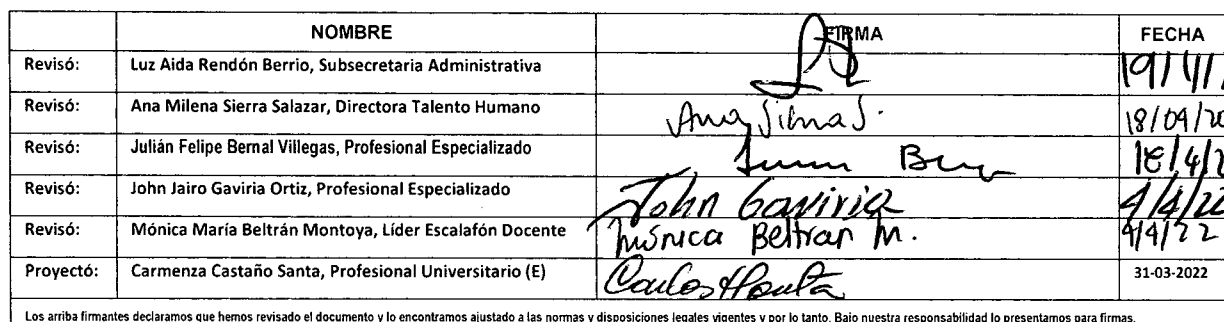 NOMBRE FIRMA FECHA
Revisó: Luz Aida Rendón Berrio, Subsecretaria Administrativa
Revisó: Ana Milena Sierra Salazar, Directora Talento Humano 18/04/20
Revisó: Julián Felipe Bernal Villegas, Profesional Especializado 18/4/2
Revisó: John Jairo Gaviria Ortiz, Profesional Especializado John Gaviria 4/4/22
Revisó: Mónica María Beltrán Montoya, Líder Escalafón Docente Mónica Beltran M. 4/4/22
Proyectó: Carmenza Castaño Santa, Profesional Universitario (E) 31-03-2022
Los arriba firmantes declaramos que hemos revisado el documento y lo encontramos ajustado a las normas y disposiciones legales vigentes y por lo tanto. Bajo nuestra responsabilidad lo presentamos para firmas.